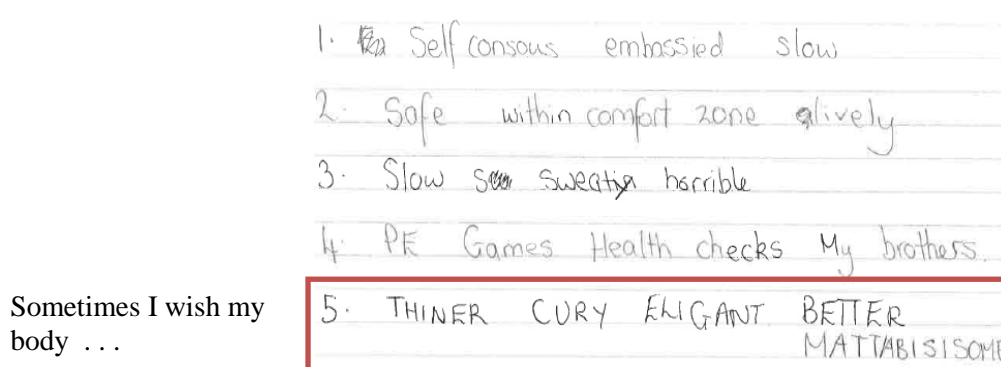 1. Self consous embassied slow
2. Safe within comfort zone alively
3. Slow sweaty horrible
4. PE Games Health checks My brothers.
Sometimes I wish my
body ...
5. THINER CURY ELIGANT BETTER
MATTABISISOME